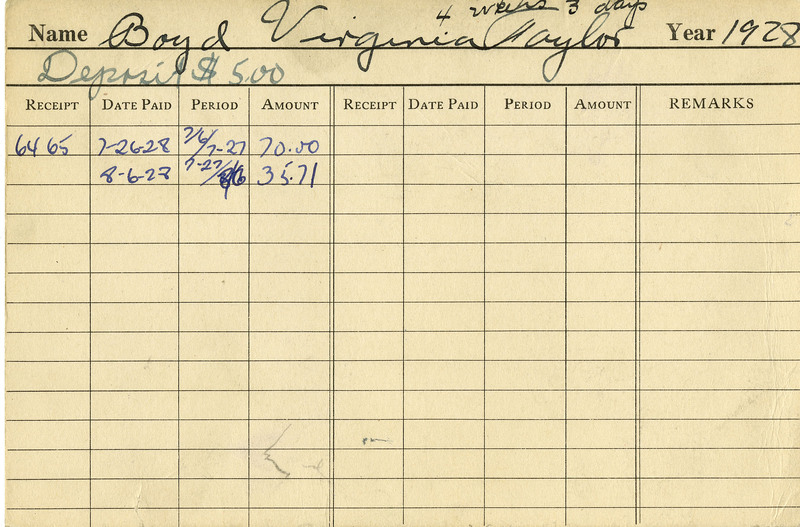 4 weeks 3 days
Name Boyd Virginia Taylor Year 1928
Deposit $ 5.00
RECEIPT DATE PAID PERIOD AMOUNT RECEIPT DATE PAID PERIOD AMOUNT REMARKS
6465 7-26-28 7/6/7-27 70.00
8-6-28 7-27/8/6 35.71